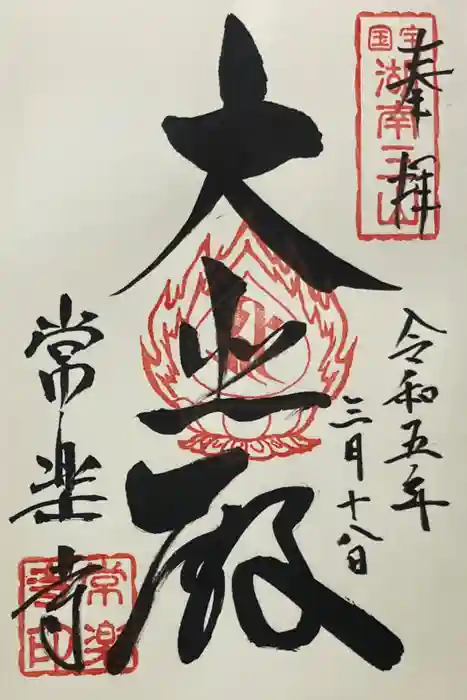 奉拝
国宝
湖南三山
令和五年
三月十八日
大悲殿
常楽寺